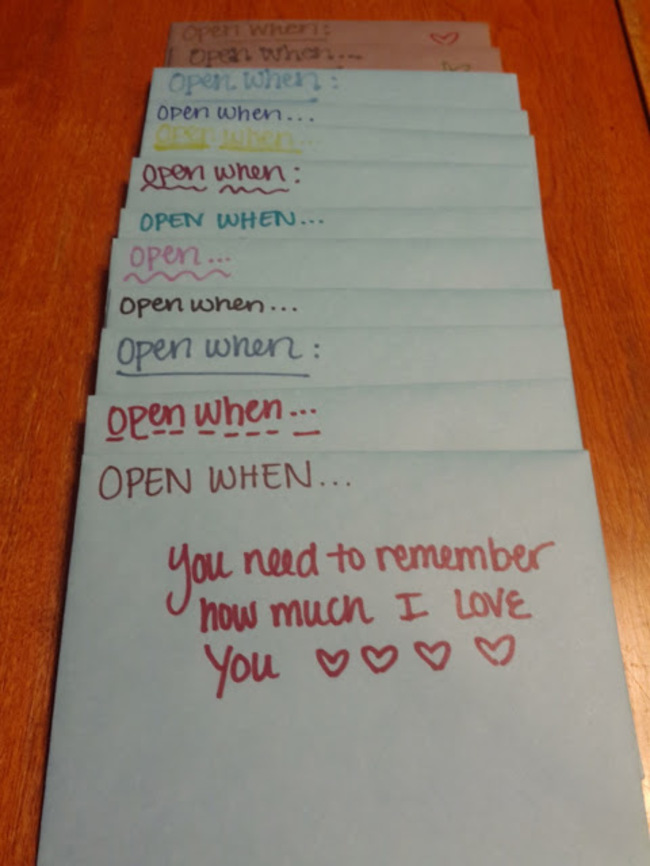 Open when:
Open when...
Open when:
Open when...
Open when...
Open when:
OPEN WHEN...
Open...
Open when...
Open when:
Open when...
OPEN WHEN...
You need to remember
how much I LOVE
You